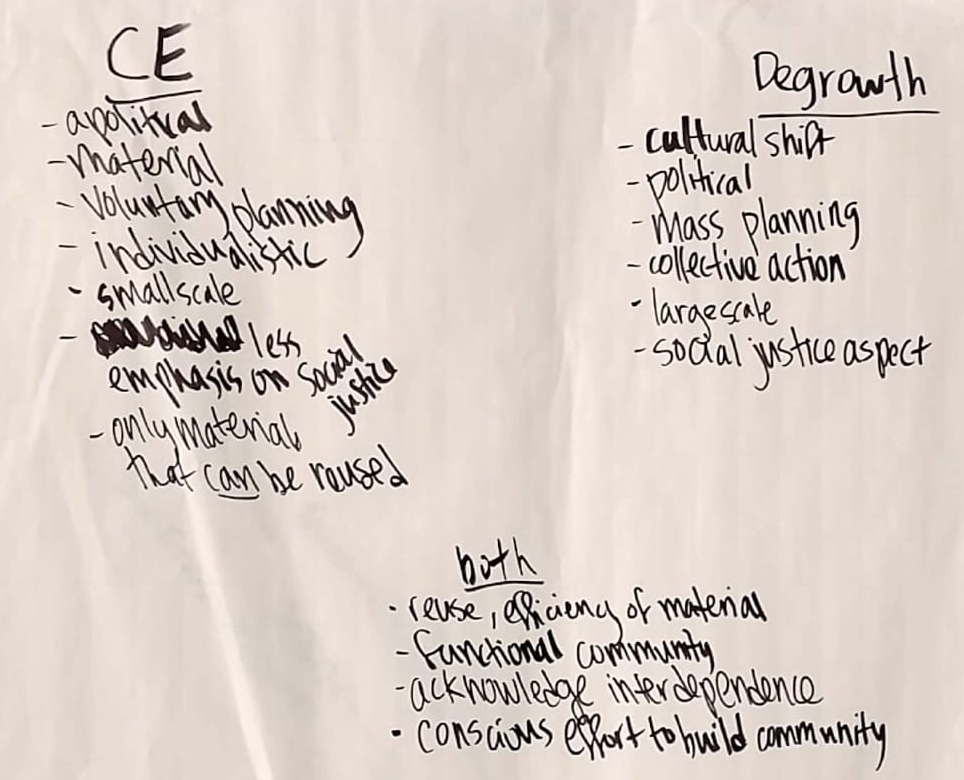 CE
- apolitical
- material
- voluntary planning
- individualistic
- smallscale
- less
emphasis on social
justice
- only material
that can be reused
Degrowth
- cultural shift
- political
- mass planning
- collective action
- largescale
- social justice aspect
both
- reuse, efficieny of material
- functional community
- acknowledge interdependence
- conscious effort to build community